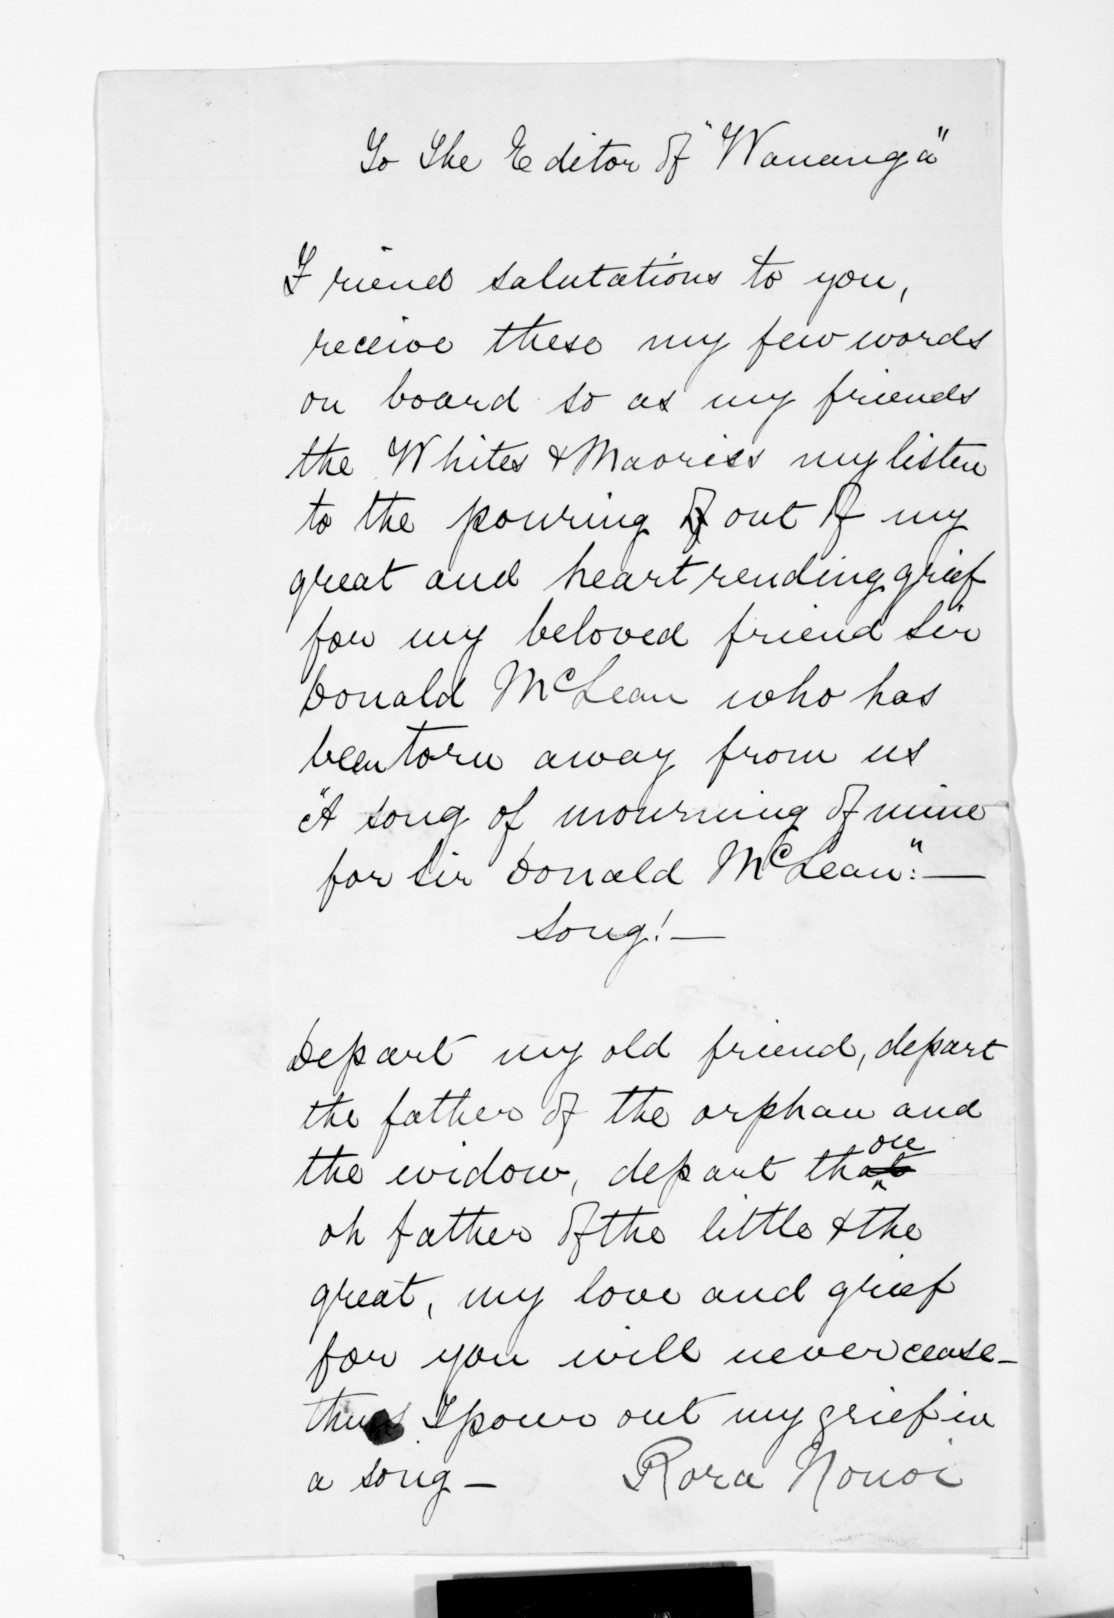 To The Editor of "Wananga"
Friend salutations to you,
receive these my few words
on board so as my friends
the Whites & Maories my listen
to the pouring of out of my
great and heart rending grief
for my beloved friend Sir
Donald McLean who has
been torn away from us
"A song of mourning of mine
for Sir Donald McLean":—
Song!—
Depart my old friend, depart
the father of the orphan and
the widow, depart thou
oh father of the little & the
great, my love and grief
for you will never cease—
thus I pour out my grief in
a song— Rora Nonoi